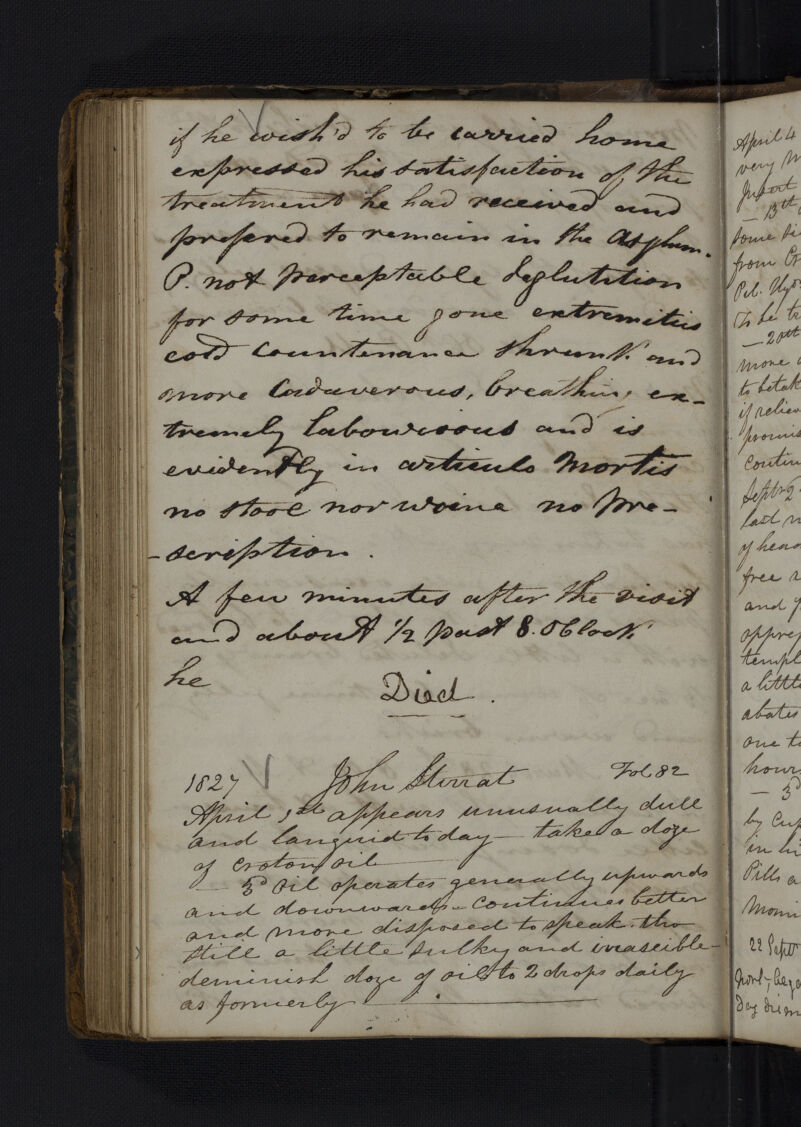 if he wish'd to be carried home
expressed his satisfaction of the
treatment he had received and
prefered to remain in the Asylum.
P. not perceptable deglutition
for some time gone extremities
cold countenance shrunk and
more Cadaverous, breathing ex-
tremely labourious and is
evidently in articulo mortis
no stool nor urine no pre-
-scription.
A few minutes after the visit
and about 1/2 past 8. OClock
he
Died.
1827 John Stirrat Fol 82
April 1st appears unusually dull
and languid today - take a doze
of croton oil
3d Oil operates generally upwards
and downwards - continues better
and more disposed to speak tho
still a little sulky and iraseible -
deminish doze of oil to 2 drops daily
as formerly
April 4
very
- 13th
some
from
Pil.
to be
- 20th
more
if
Septr 2
last
of
free
and
a little
abates
one
- 3d
by
in
Pills
22 Septr
Day